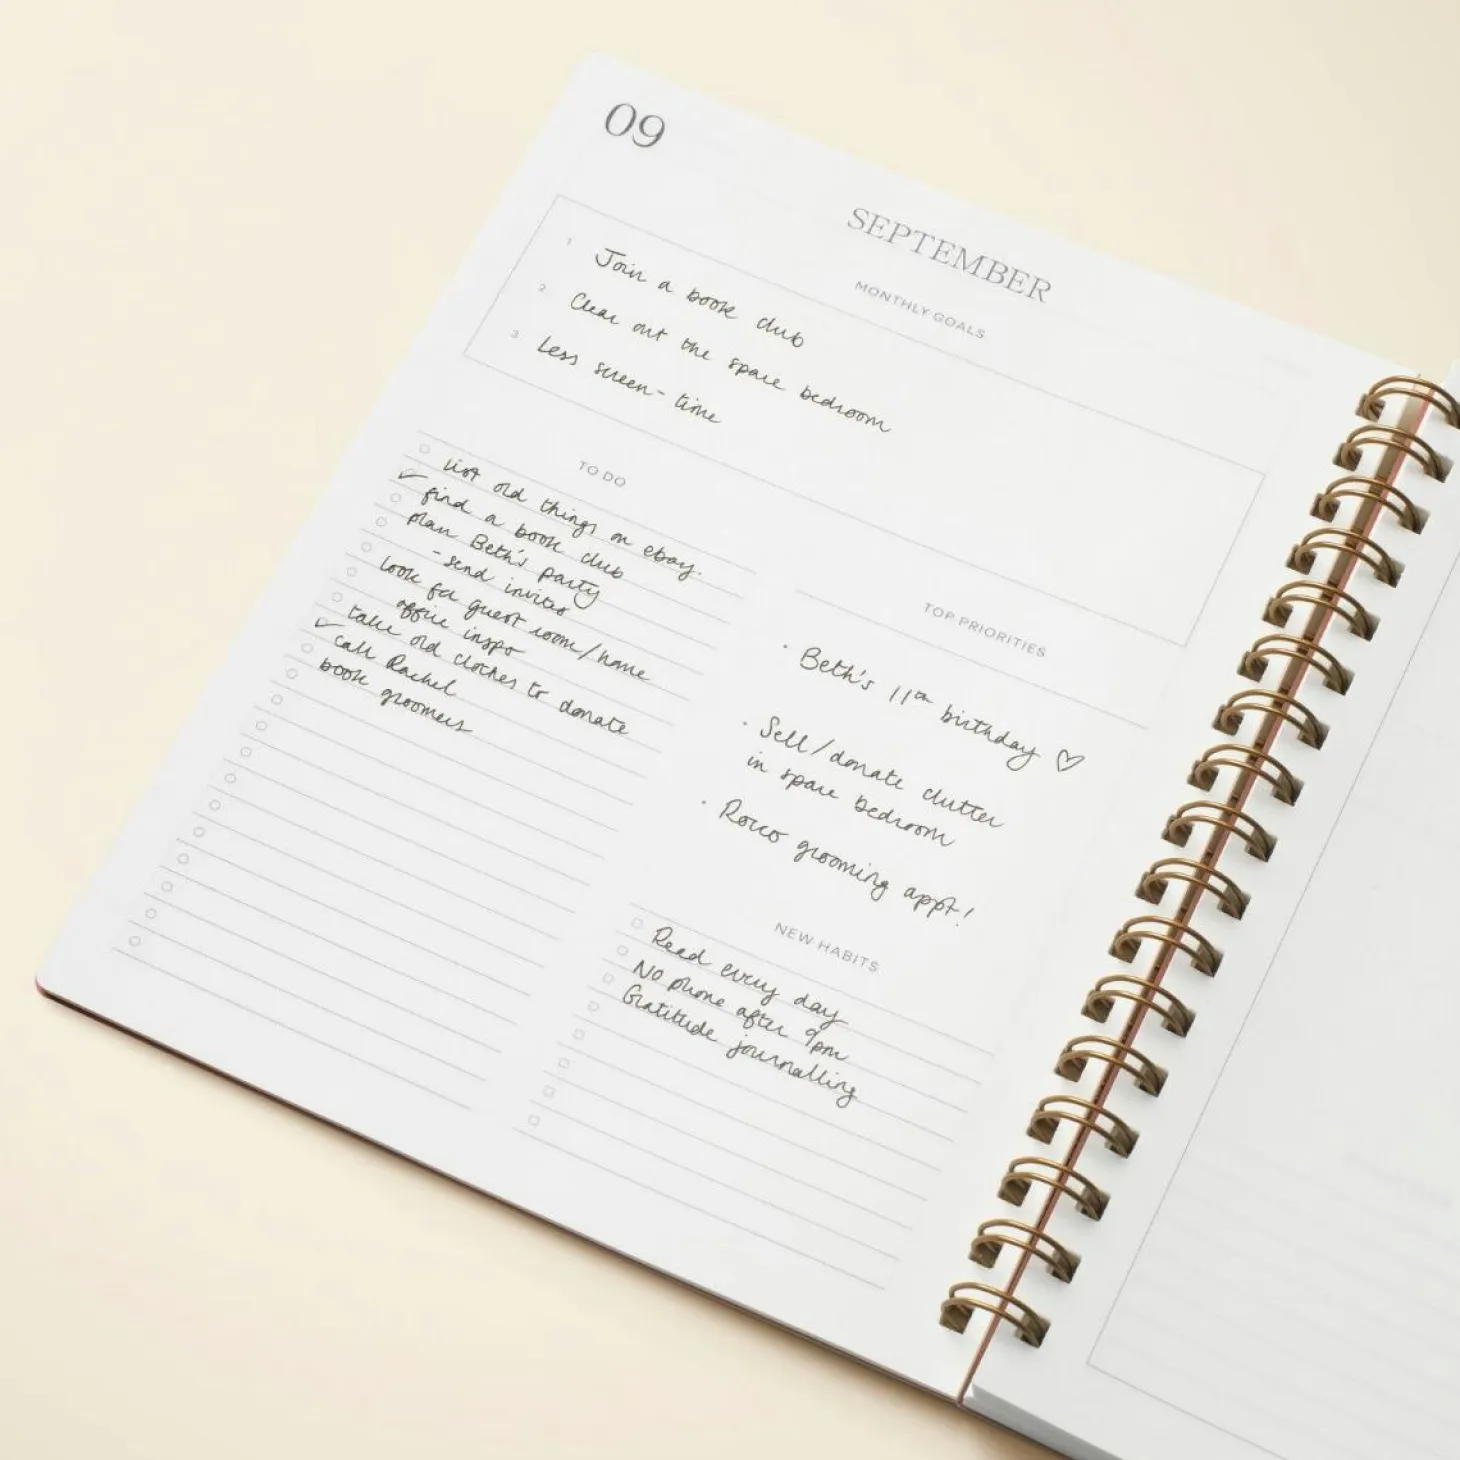 09
SEPTEMBER
MONTHLY GOALS
1 Join a book club
2 Clear out the spare bedroom
3 Less screen-time
TO DO
list old things on ebay.
✓ find a book club
plan Beth's party
- send invites
look for guest room/home
office inspo
take old clothes to donate
✓ call Rachel
book groomers
TOP PRIORITIES
• Beth's 11th birthday ♡
• Sell/donate clutter
in spare bedroom
• Rocco grooming appt!
NEW HABITS
Read every day
No phone after 9pm
Gratitude journalling